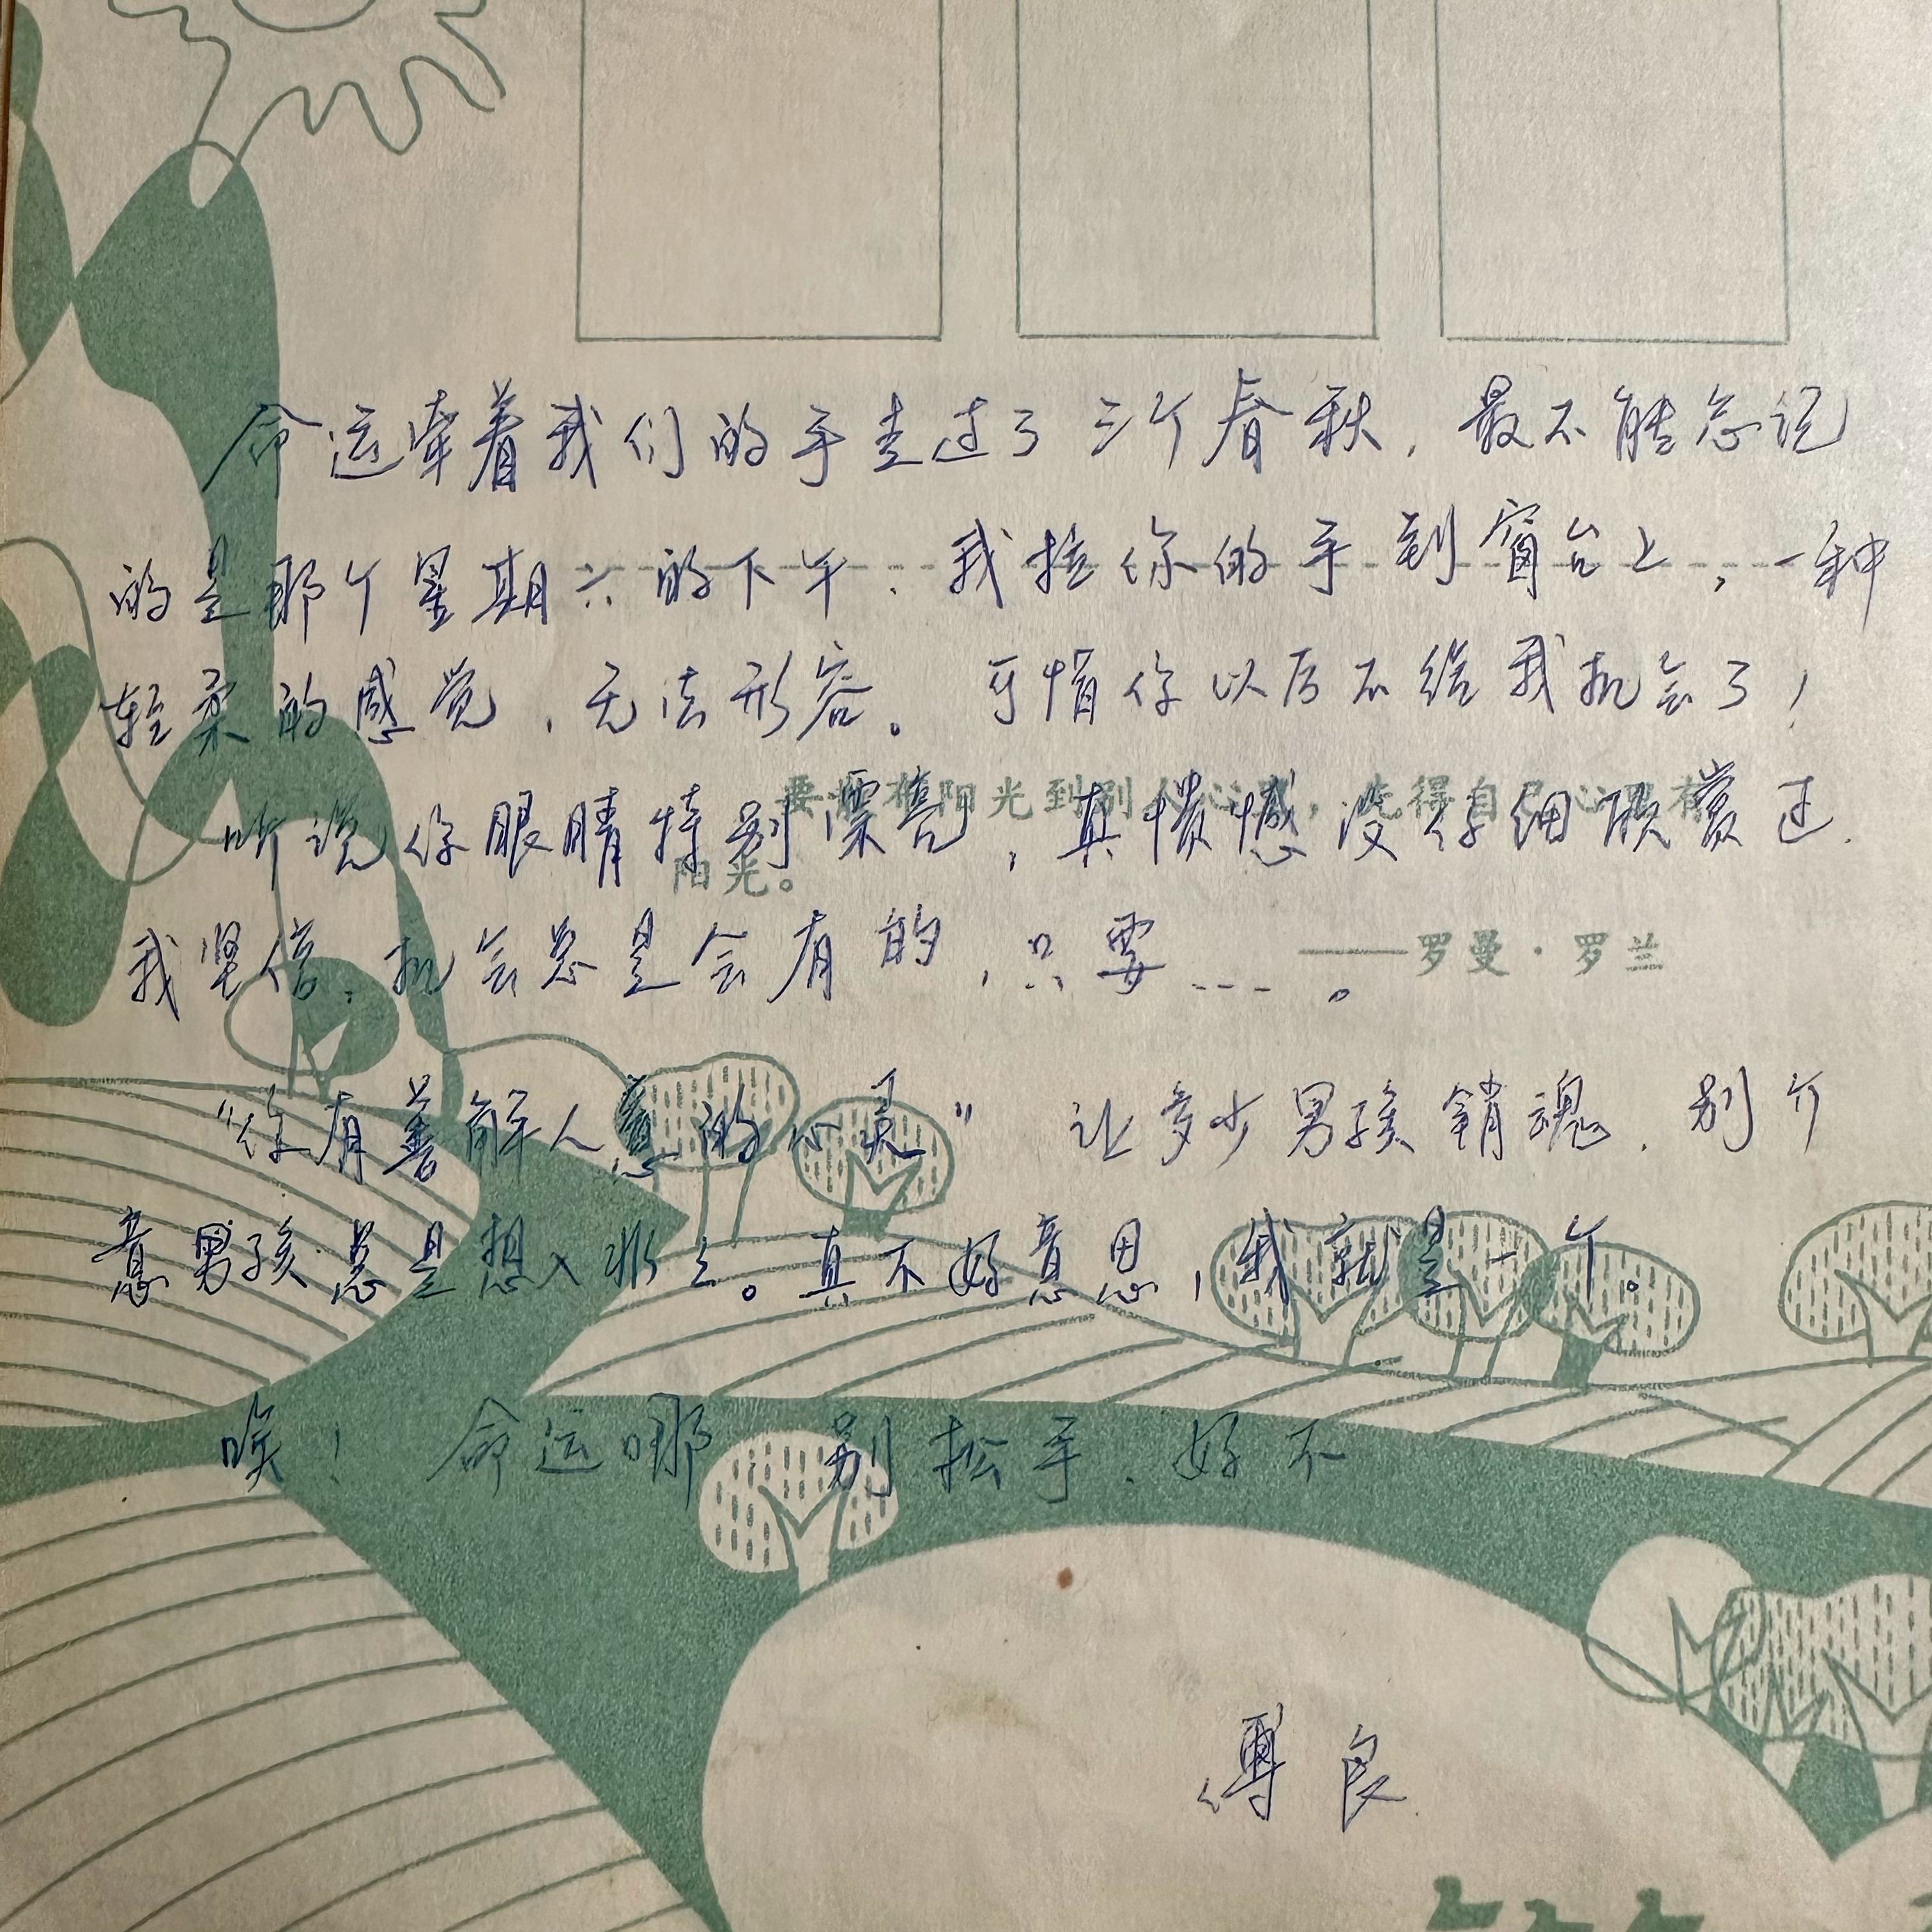 命运牵着我们的手走过了三个春秋，最不能忘记
的是那个星期六的下午，我拉你的手到窗台上，一种
轻柔的感觉，无法形容。可惜你以后不给我机会了！
听说你眼睛特别漂亮，真遗憾没仔细欣赏过，
要 阳光到别人心 ，先得自己心里有
阳光。
我坚信，机会总是会有的，只要……。
——罗曼·罗兰
“你有善解人意的心灵”让多少男孩销魂，别介
意男孩总是想入非非。真不好意思，我就是一个。
唉！命运哪 别松手，好不
傅良